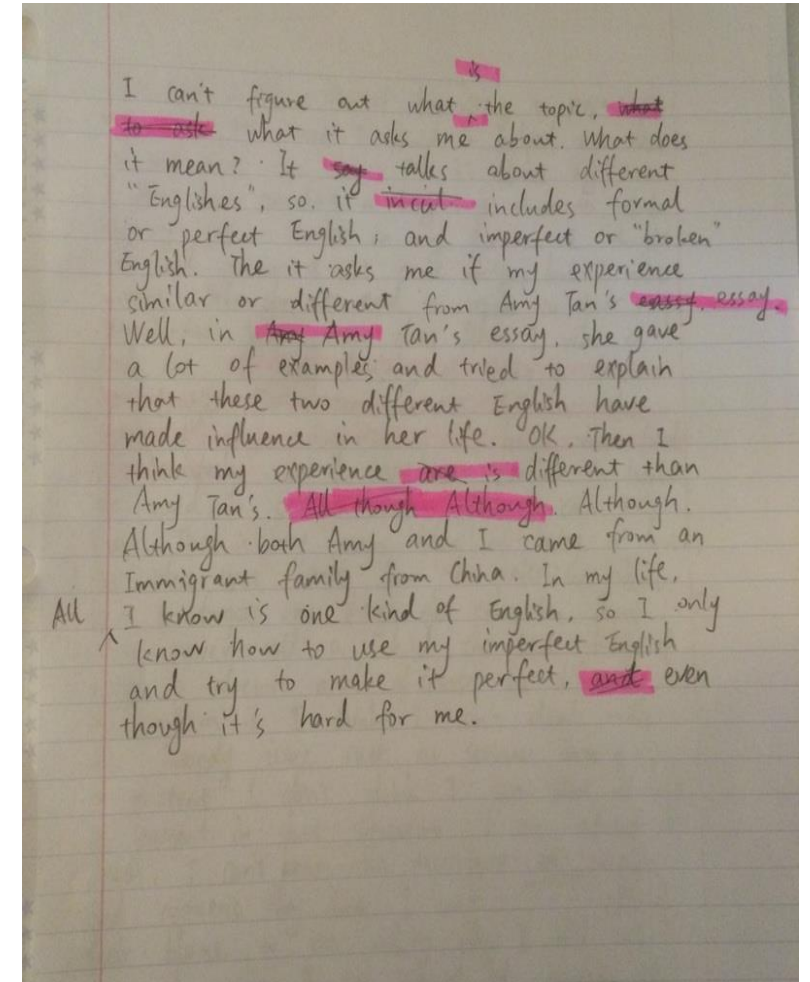 is
I can't figure out what ^ the topic, what
to ask what it asks me about. What does
it mean? It say talks about different
"Englishes", so. it incul includes formal
or perfect English, and imperfect or "broken"
English. The it asks me if my experience
similar or different from Amy Tan's eassy. essay.
Well, in Amy Tan's essay, she gave
a lot of examples and tried to explain
that these two different English have
made influence in her life. OK. Then I
think my experience are is different than
Amy Tan's. All though Although. Although.
Although both Amy and I came from an
Immigrant family from China. In my life,
All ^ I know is one kind of English, so I only
know how to use my imperfect English
and try to make it perfect, and even
though it's hard for me.